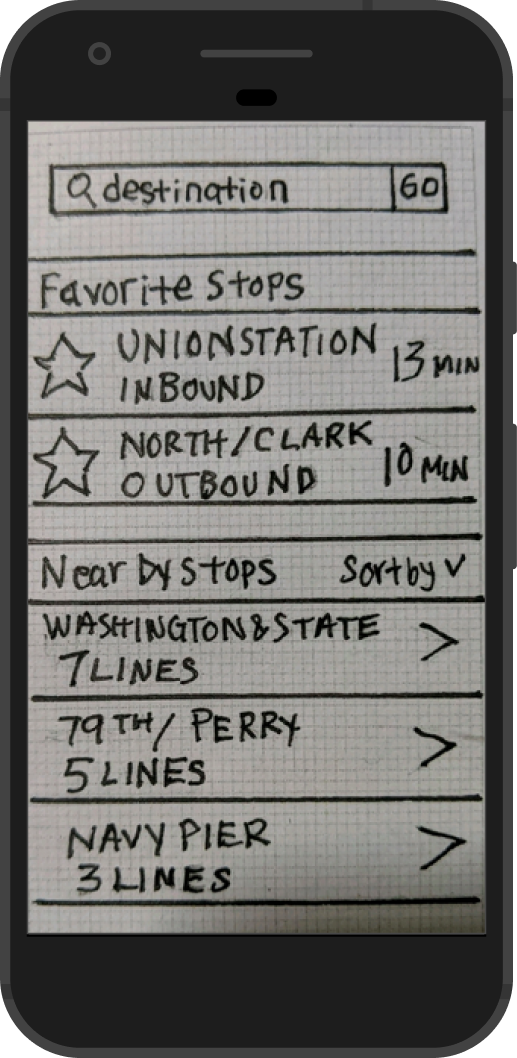 destination GO
Favorite Stops
UNION STATION
INBOUND
13 MIN
NORTH/CLARK
OUTBOUND
10 MIN
Near by Stops Sort by
WASHINGTON & STATE
7 LINES
79TH/ PERRY
5 LINES
NAVY PIER
3 LINES